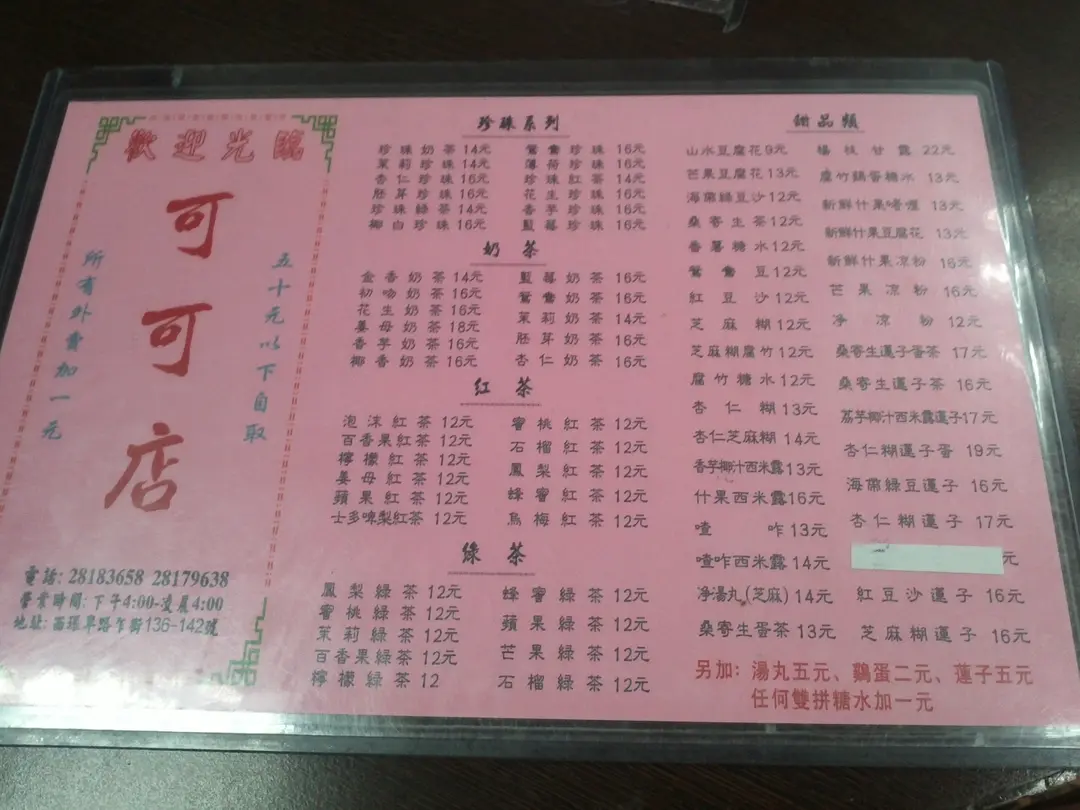 歡迎光臨
可可店
五十元以下自取
所有外賣加一元
電話: 28183658 28179638
營業時間: 下午4:00-凌晨4:00
地址: 西環卑路乍街136-142號
珍珠系列
珍珠奶茶 14元 鴛鴦珍珠 16元
茉莉珍珠 14元 薄荷珍珠 16元
杏仁珍珠 16元 珍珠紅茶 14元
胚芽珍珠 16元 花生珍珠 16元
珍珠綠茶 14元 香芋珍珠 16元
椰白珍珠 16元 藍莓珍珠 16元
奶茶
金香奶茶 14元 藍莓奶茶 16元
初吻奶茶 16元 鴛鴦奶茶 16元
花生奶茶 16元 茉莉奶茶 14元
姜母奶茶 18元 胚芽奶茶 16元
香芋奶茶 16元 杏仁奶茶 16元
椰香奶茶 16元
红茶
泡沫紅茶 12元 蜜桃紅茶 12元
百香果紅茶 12元 石榴紅茶 12元
檸檬紅茶 12元 鳳梨紅茶 12元
姜母紅茶 12元 蜂蜜紅茶 12元
蘋果紅茶 12元 烏梅紅茶 12元
士多啤梨紅茶 12元
綠茶
鳳梨綠茶 12元 蜂蜜綠茶 12元
蜜桃綠茶 12元 蘋果綠茶 12元
茉莉綠茶 12元 芒果綠茶 12元
百香果綠茶 12元 石榴綠茶 12元
檸檬綠茶 12
甜品類
山水豆腐花 9元 楊枝甘露 22元
芒果豆腐花 13元 腐竹鷄蛋糖水 13元
海帶綠豆沙 12元 新鮮什果啫喱 13元
桑寄生茶 12元 新鮮什果豆腐花 13元
香薯糖水 12元 新鮮什果凉粉 16元
鴛鴦豆 12元 芒果凉粉 16元
紅豆沙 12元 净凉粉 12元
芝麻糊 12元 桑寄生蓮子蛋茶 17元
芝麻糊腐竹 12元 桑寄生蓮子茶 16元
腐竹糖水 12元 荔芋椰汁西米露蓮子 17元
杏仁糊 13元 杏仁糊蓮子蛋 19元
杏仁芝麻糊 14元 海帶綠豆蓮子 16元
香芋椰汁西米露 13元 杏仁糊蓮子 17元
什果西米露 16元 元
喳咋 13元 紅豆沙蓮子 16元
喳咋西米露 14元 芝麻糊蓮子 16元
净湯丸(芝麻) 14元
桑寄生蛋茶 13元
另加: 湯丸五元、鷄蛋二元、蓮子五元
任何雙拼糖水加一元